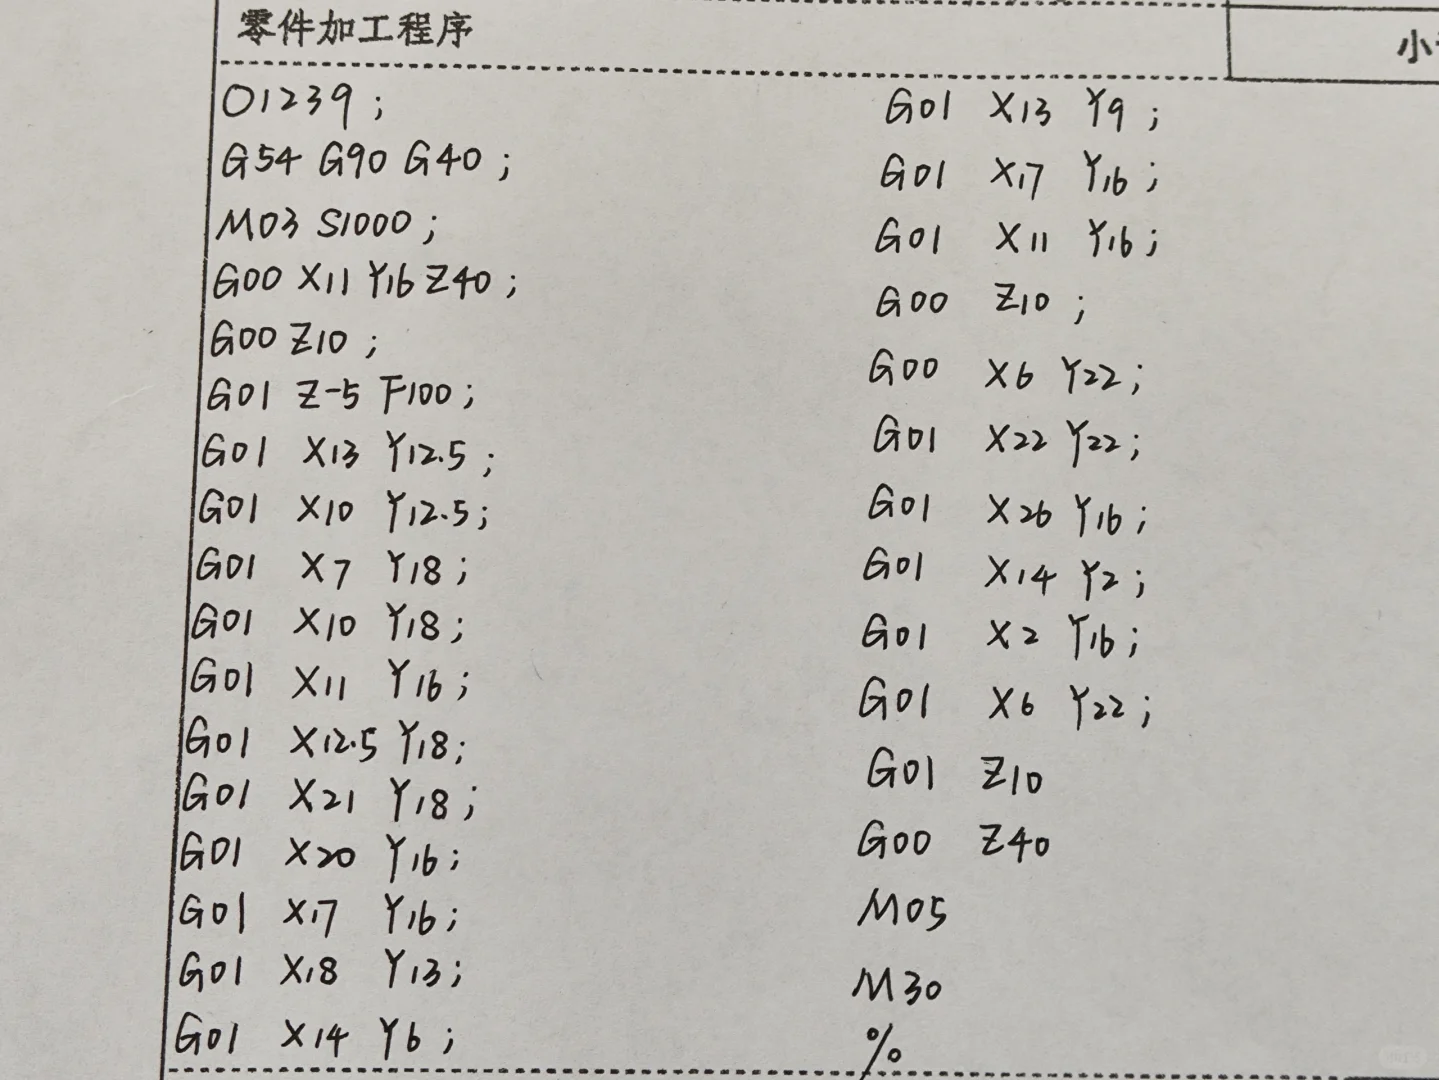 零件加工程序
小
O1239;
G54 G90 G40;
M03 S1000;
G00 X11 Y16 Z40;
G00 Z10;
G01 Z-5 F100;
G01 X13 Y12.5;
G01 X10 Y12.5;
G01 X7 Y18;
G01 X10 Y18;
G01 X11 Y16;
G01 X12.5 Y18;
G01 X21 Y18;
G01 X20 Y16;
G01 X17 Y16;
G01 X18 Y13;
G01 X14 Y6;
G01 X13 Y9;
G01 X17 Y16;
G01 X11 Y16;
G00 Z10;
G00 X6 Y22;
G01 X22 Y22;
G01 X26 Y16;
G01 X14 Y2;
G01 X2 Y16;
G01 X6 Y22;
G01 Z10
G00 Z40
M05
M30
%